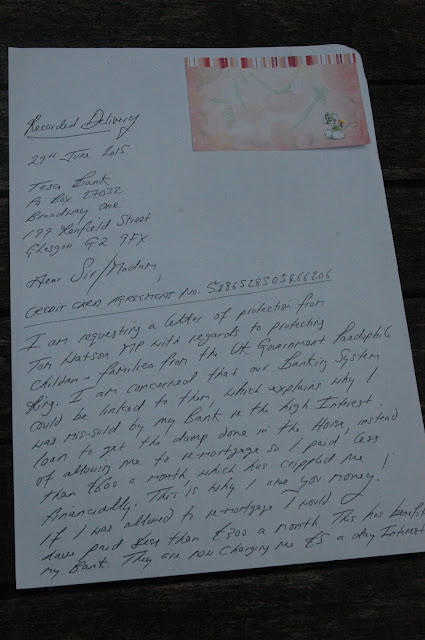 Recorded Delivery
29th June 2015
Tesco Bank
PO Box 27032
Broadway One
199 Renfield Street
Glasgow G2 9FX
Dear Sir/Madam,
CREDIT CARD AGREEMENT NO.
I am requesting a letter of protection from
Tom Watson MP with regards to protecting
children + families from the UK Government Paedophile
Ring. I am concerned that our Banking System
could be linked to them, which explains why I
was mis-sold by my Bank re the high Interest
loan to get the damp done in the House, instead
of allowing me to re-mortgage so I paid less
than £600 a month, which has crippled me
financially. This is why I owe you money!
If I was allowed to re-mortgage I would
have paid less than £300 a month. This has
my Bank. They are now charging me £5 a day Interest